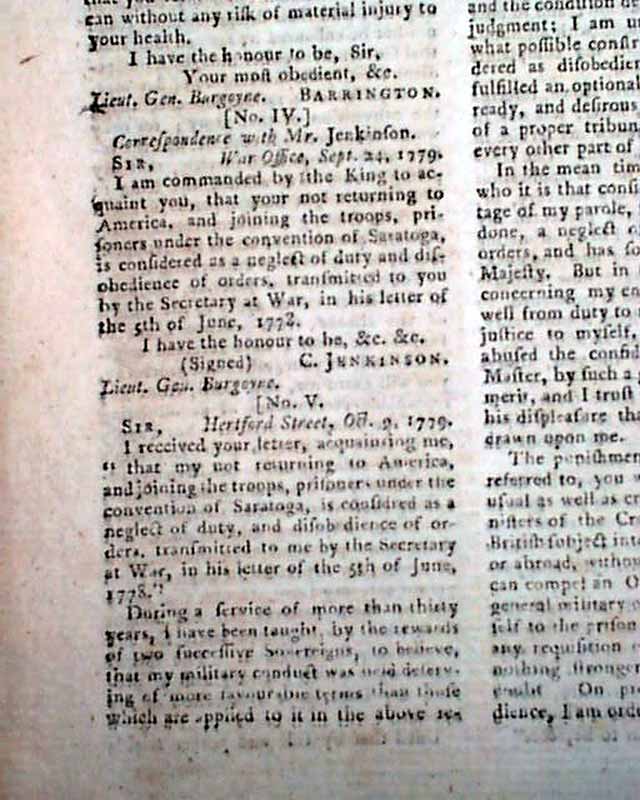 can without any risk of material injury to
your health.
I have the honour to be, Sir,
Your most obedient, &c.
Lieut. Gen. Burgoyne. BARRINGTON.
[No. IV.]
Correspondence with Mr. Jenkinson.
SIR, War Office, Sept. 24, 1779.
I am commanded by the King to ac-
quaint you, that your not returning to
America, and joining the troops, pri-
soners under the convention of Saratoga,
is considered as a neglect of duty and dis-
obedience of orders, transmitted to you
by the Secretary at War, in his letter of
the 5th of June, 1778.
I have the honour to be, &c. &c.
(Signed) C. JENKINSON.
Lieut. Gen. Burgoyne.
[No. V.
SIR, Hertford Street, Oct. 9, 1779.
I received your letter, acquainting me,
" that my not returning to America,
and joining the troops, prisoners under the
convention of Saratoga, is considred as a
neglect of duty, and disobedience of or-
ders, transmitted to me by the Secretary
at War, in his letter of the 5th of June,
1778."
During a service of more than thirty
years, I have been taught, by the rewards
of two successive Sovereigns, to believe,
that my military conduct was deserv-
ing of more favourable terms than those
which are applied to it in the above
and the condition
judgment; I am
what possible
dered as
fulfilled an optional
ready, and desirous
of a proper
every other part of
In the mean
who it is that
tage of my parole,
done, a neglect
orders, and has
Majesty. But in
concerning my
well from duty to
justice to myself,
abused the
Master, by such a
merit, and I trust
his displeasure
drawn upon me.
The
referred to, you
usual as well as
nisters of the
British subject
or abroad,
can compel an
general military
self to the
any requisition
nothing stronger
On
dience, I am